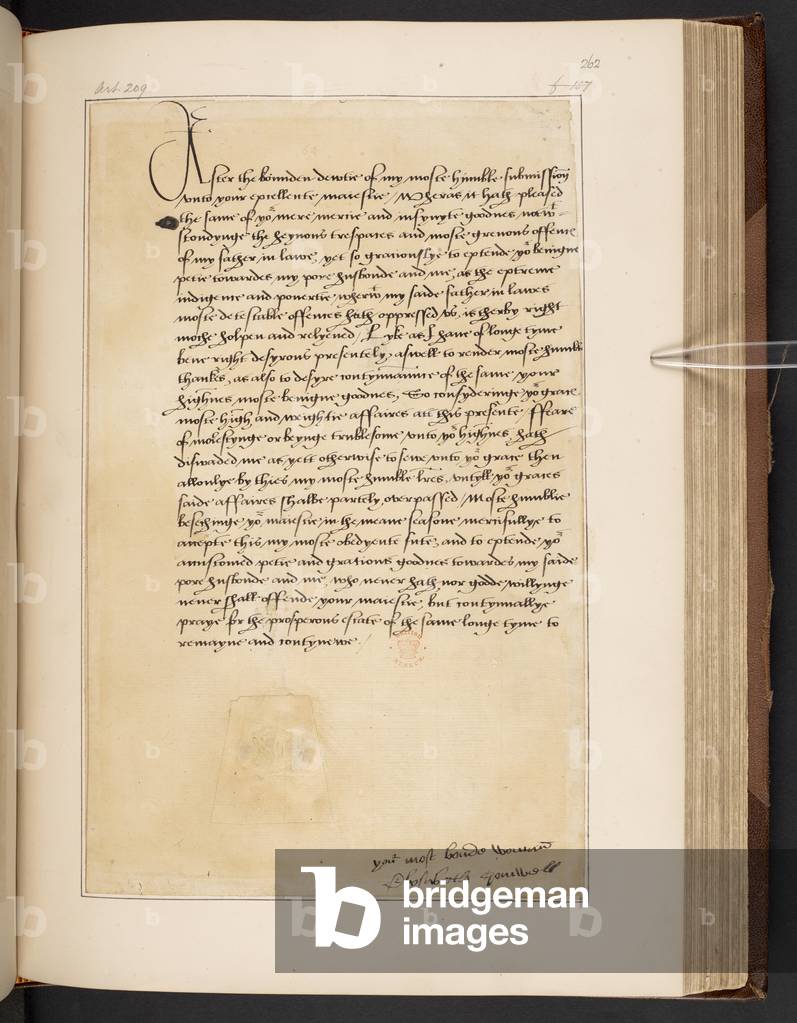 262
Art. 209
f. 107
After the bounden dewtie of my moste humble submission
unto your excellente maiestie / Wheras it hath pleased
the same of yor mere mercie and infynyte goodnes notwt=
stondynge the heynous trespaces and moste grevous offences
of my father in lawe, yet so graciouslye to extende yor benigne
petie towardes my pore husbonde and me, as the extreme
indigence and povertie wherwt my saide father in lawes
moste detestable offences hath oppressed us, is therby right
moche holpen and relyeved / Lyke as I have of longe tyme
bene right desyrous presentely, aswell to render moste humble
thankes, as also to desyre contynuaunce of the same your
highnes moste benigne goodnes, So consyderinge yor grace
moste high and weightie affaires att this presente, ffeare
of molestynge or beynge trublesome unto yor highnes hath
diswaded me as yett otherwise to sewe unto yor grace then
allonlye by thies my moste humble lres, untyll yor graces
saide affaires shalbe partely overpassed / Moste humblie
besechinge yor maiestie in the meane seasone mercifullye to
accepte this my moste obedyente sute, and to extende yor
accustomed petie and gracious goodnes towardes my saide
pore husbonde and me, who never hath nor godde willynge
never shall offende your maiestie, but contynuallye
praye for the prosperous estate of the same longe tyme to
remayne and contynewe /
your most bounde woman
Elysabeth Cromwell
b bridgeman
images